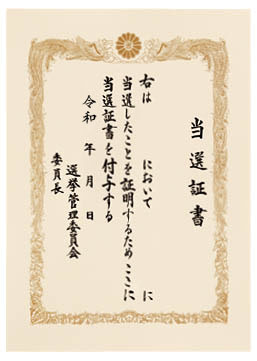 当選証書
右は　　　において　　　に
当選したことを証明するためここに
当選証書を付与する
令和　年　月　日
選挙管理委員会
委員長